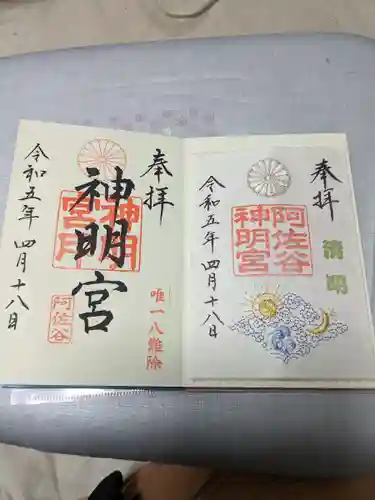 奉拝
清明
阿佐谷
神明宮
令和五年 四月十八日
奉拝
唯一八難除
神明宮
神明宮
阿佐谷
令和五年 四月十八日